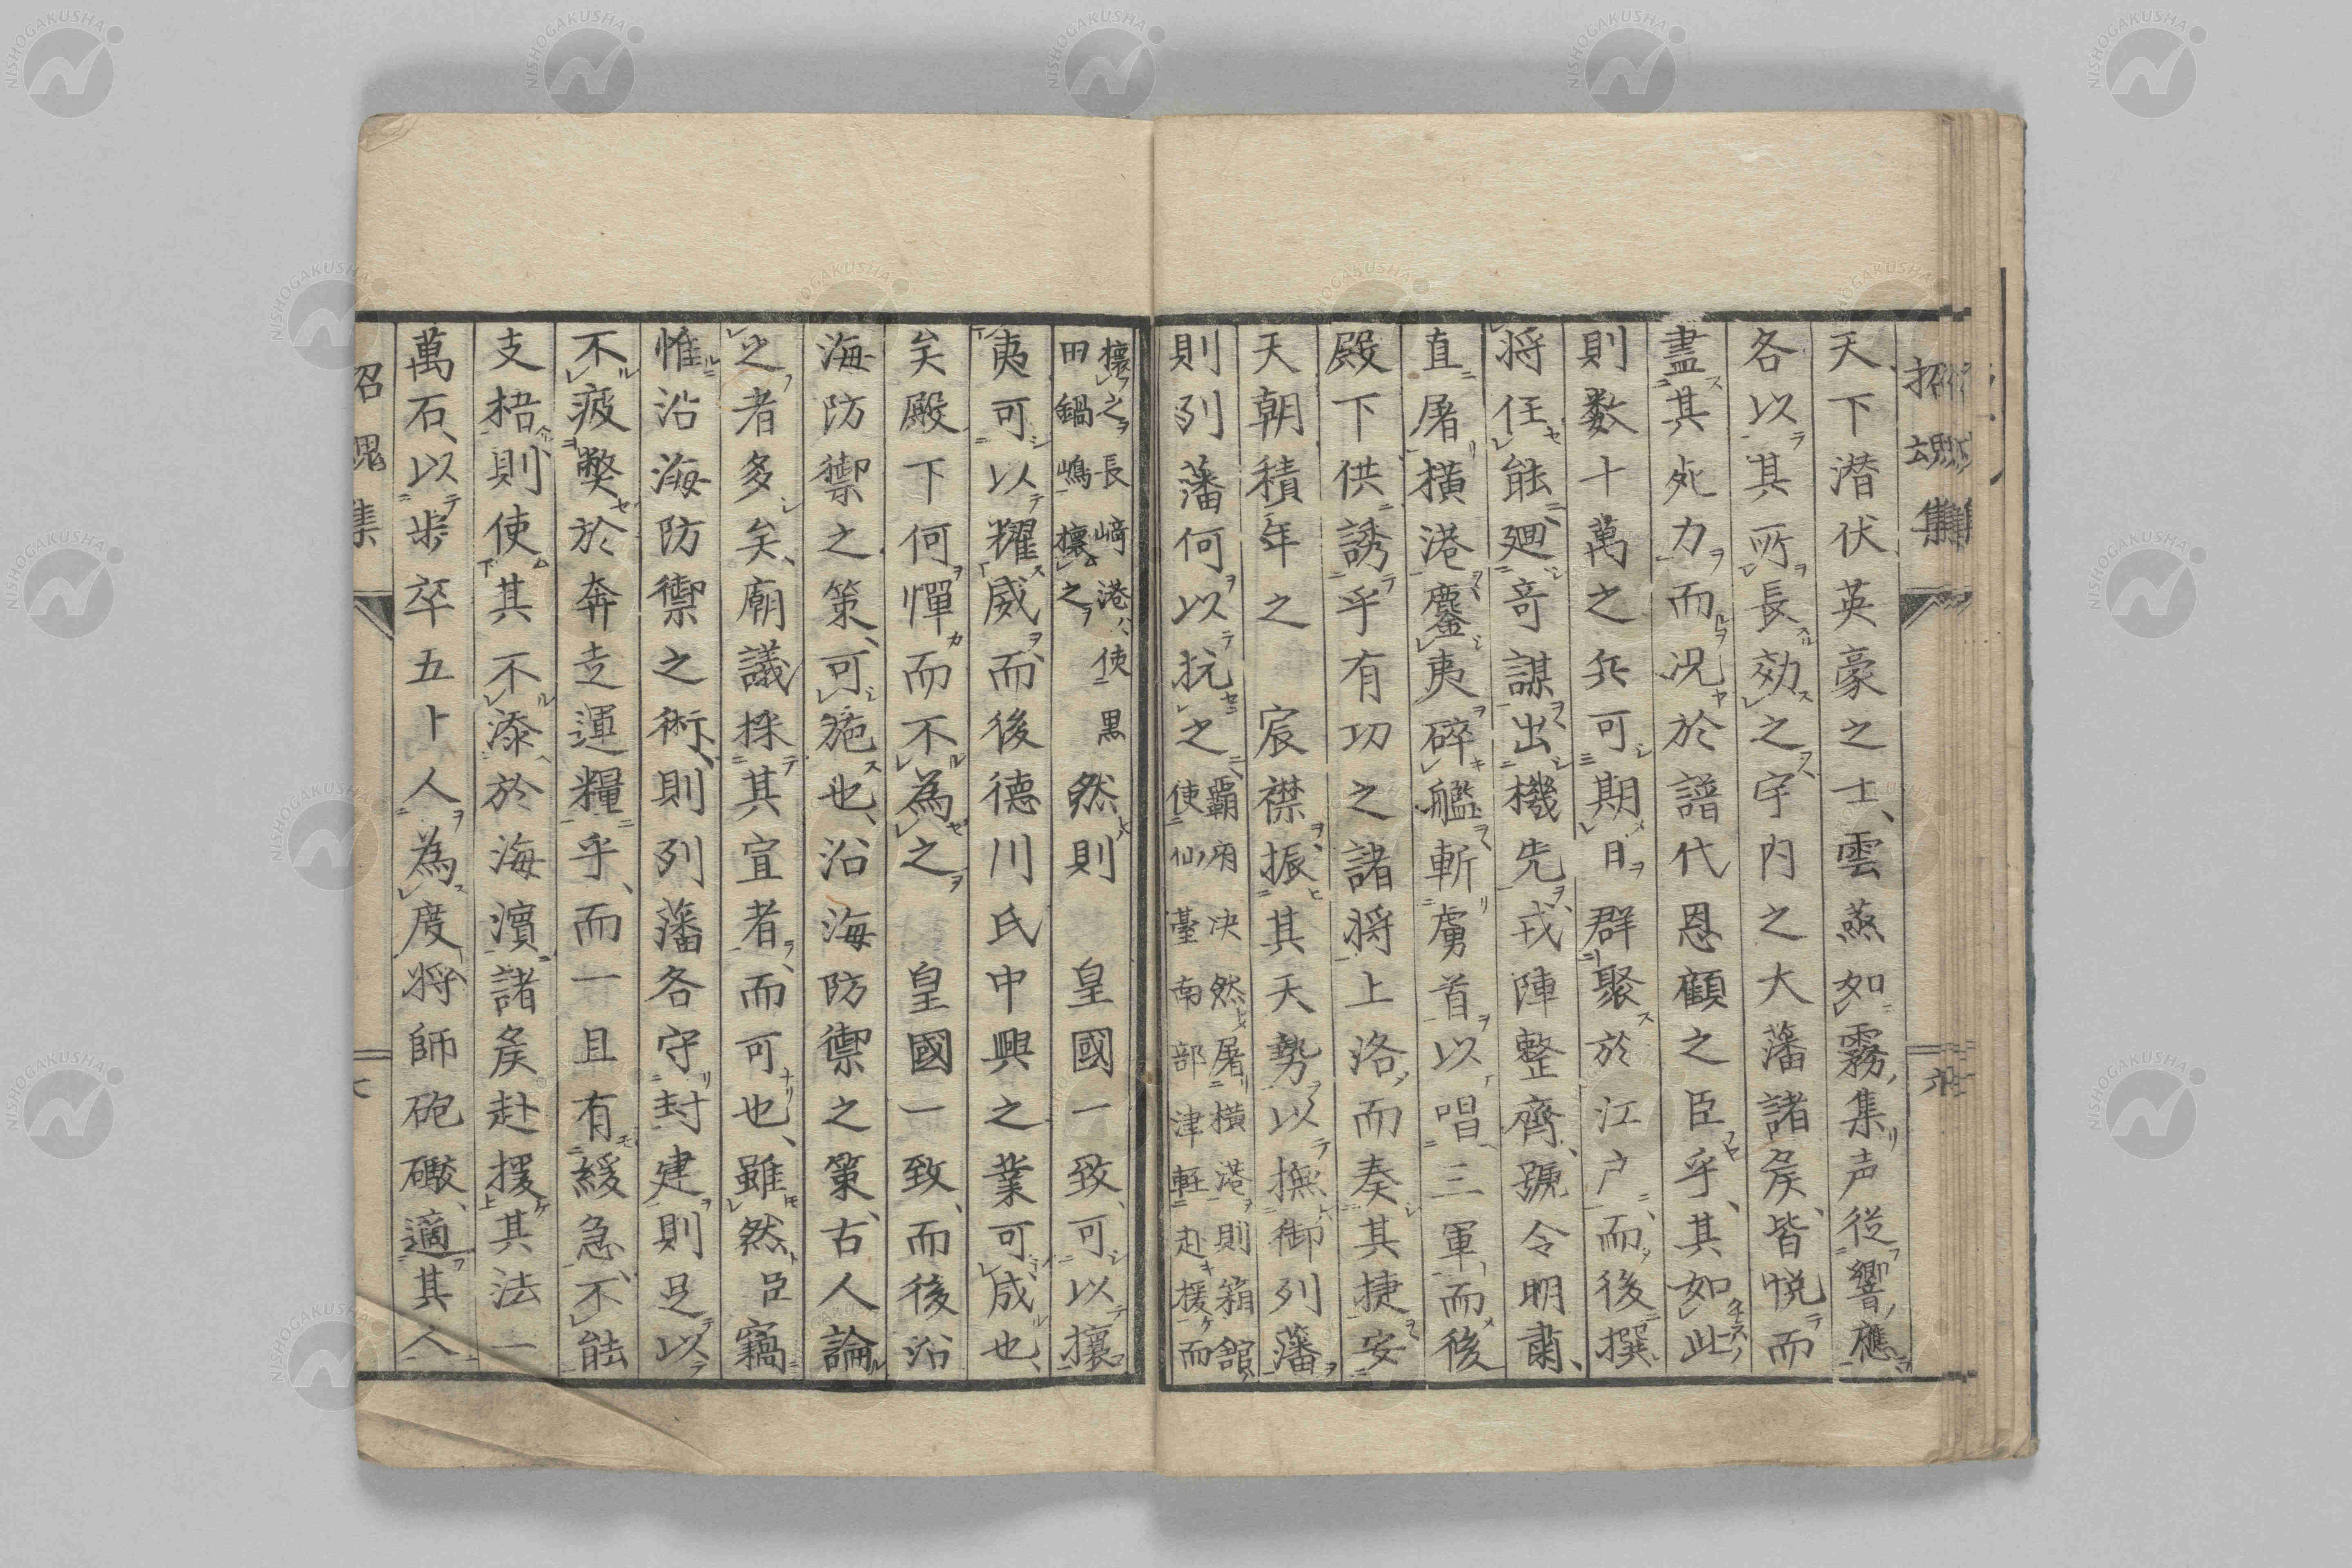 招魂集
六
天下潜伏英豪之士、雲蒸如霧、集声従響、應
各以其所長効之宇内之大藩諸矦、皆悦而
盡其死力而况於譜代恩顧之臣乎、其如此
則数十萬之兵可期日群聚於江戸、而後撰
将任能、廻奇謀出機先、戎陣整齊、號令明肅、
直屠横港鏖夷碎艦斬虜首以唱三軍、而後
殿下供誘乎有功之諸将上洛、而奏其捷安
天朝積年之　宸襟、振其天勢以撫御列藩
則列藩何以抗之、覇府决然屠横港則箱舘
使仙臺南部津軽赴援而
攘之長﨑港、使黒
田鍋嶋攘之然則　皇國一致、可以攘
夷可以耀威、而後德川氏中興之業可成也、
矣殿下何憚而不為之　皇國一致、而後沿
海防禦之策、可施也、沿海防禦之策、古人論
之者多矣、廟議採其宜者、而可也、雖然臣竊
惟沿海防禦之術、則列藩各守封建則足以
不疲弊於奔走運糧乎、而一旦有緩急、不能
支梧、則使其不漆於海濵諸矦赴援其法一
萬石、以歩卒五十人為度、将師砲礮、適其人
招魂集
七
NISHOGAKUSHA